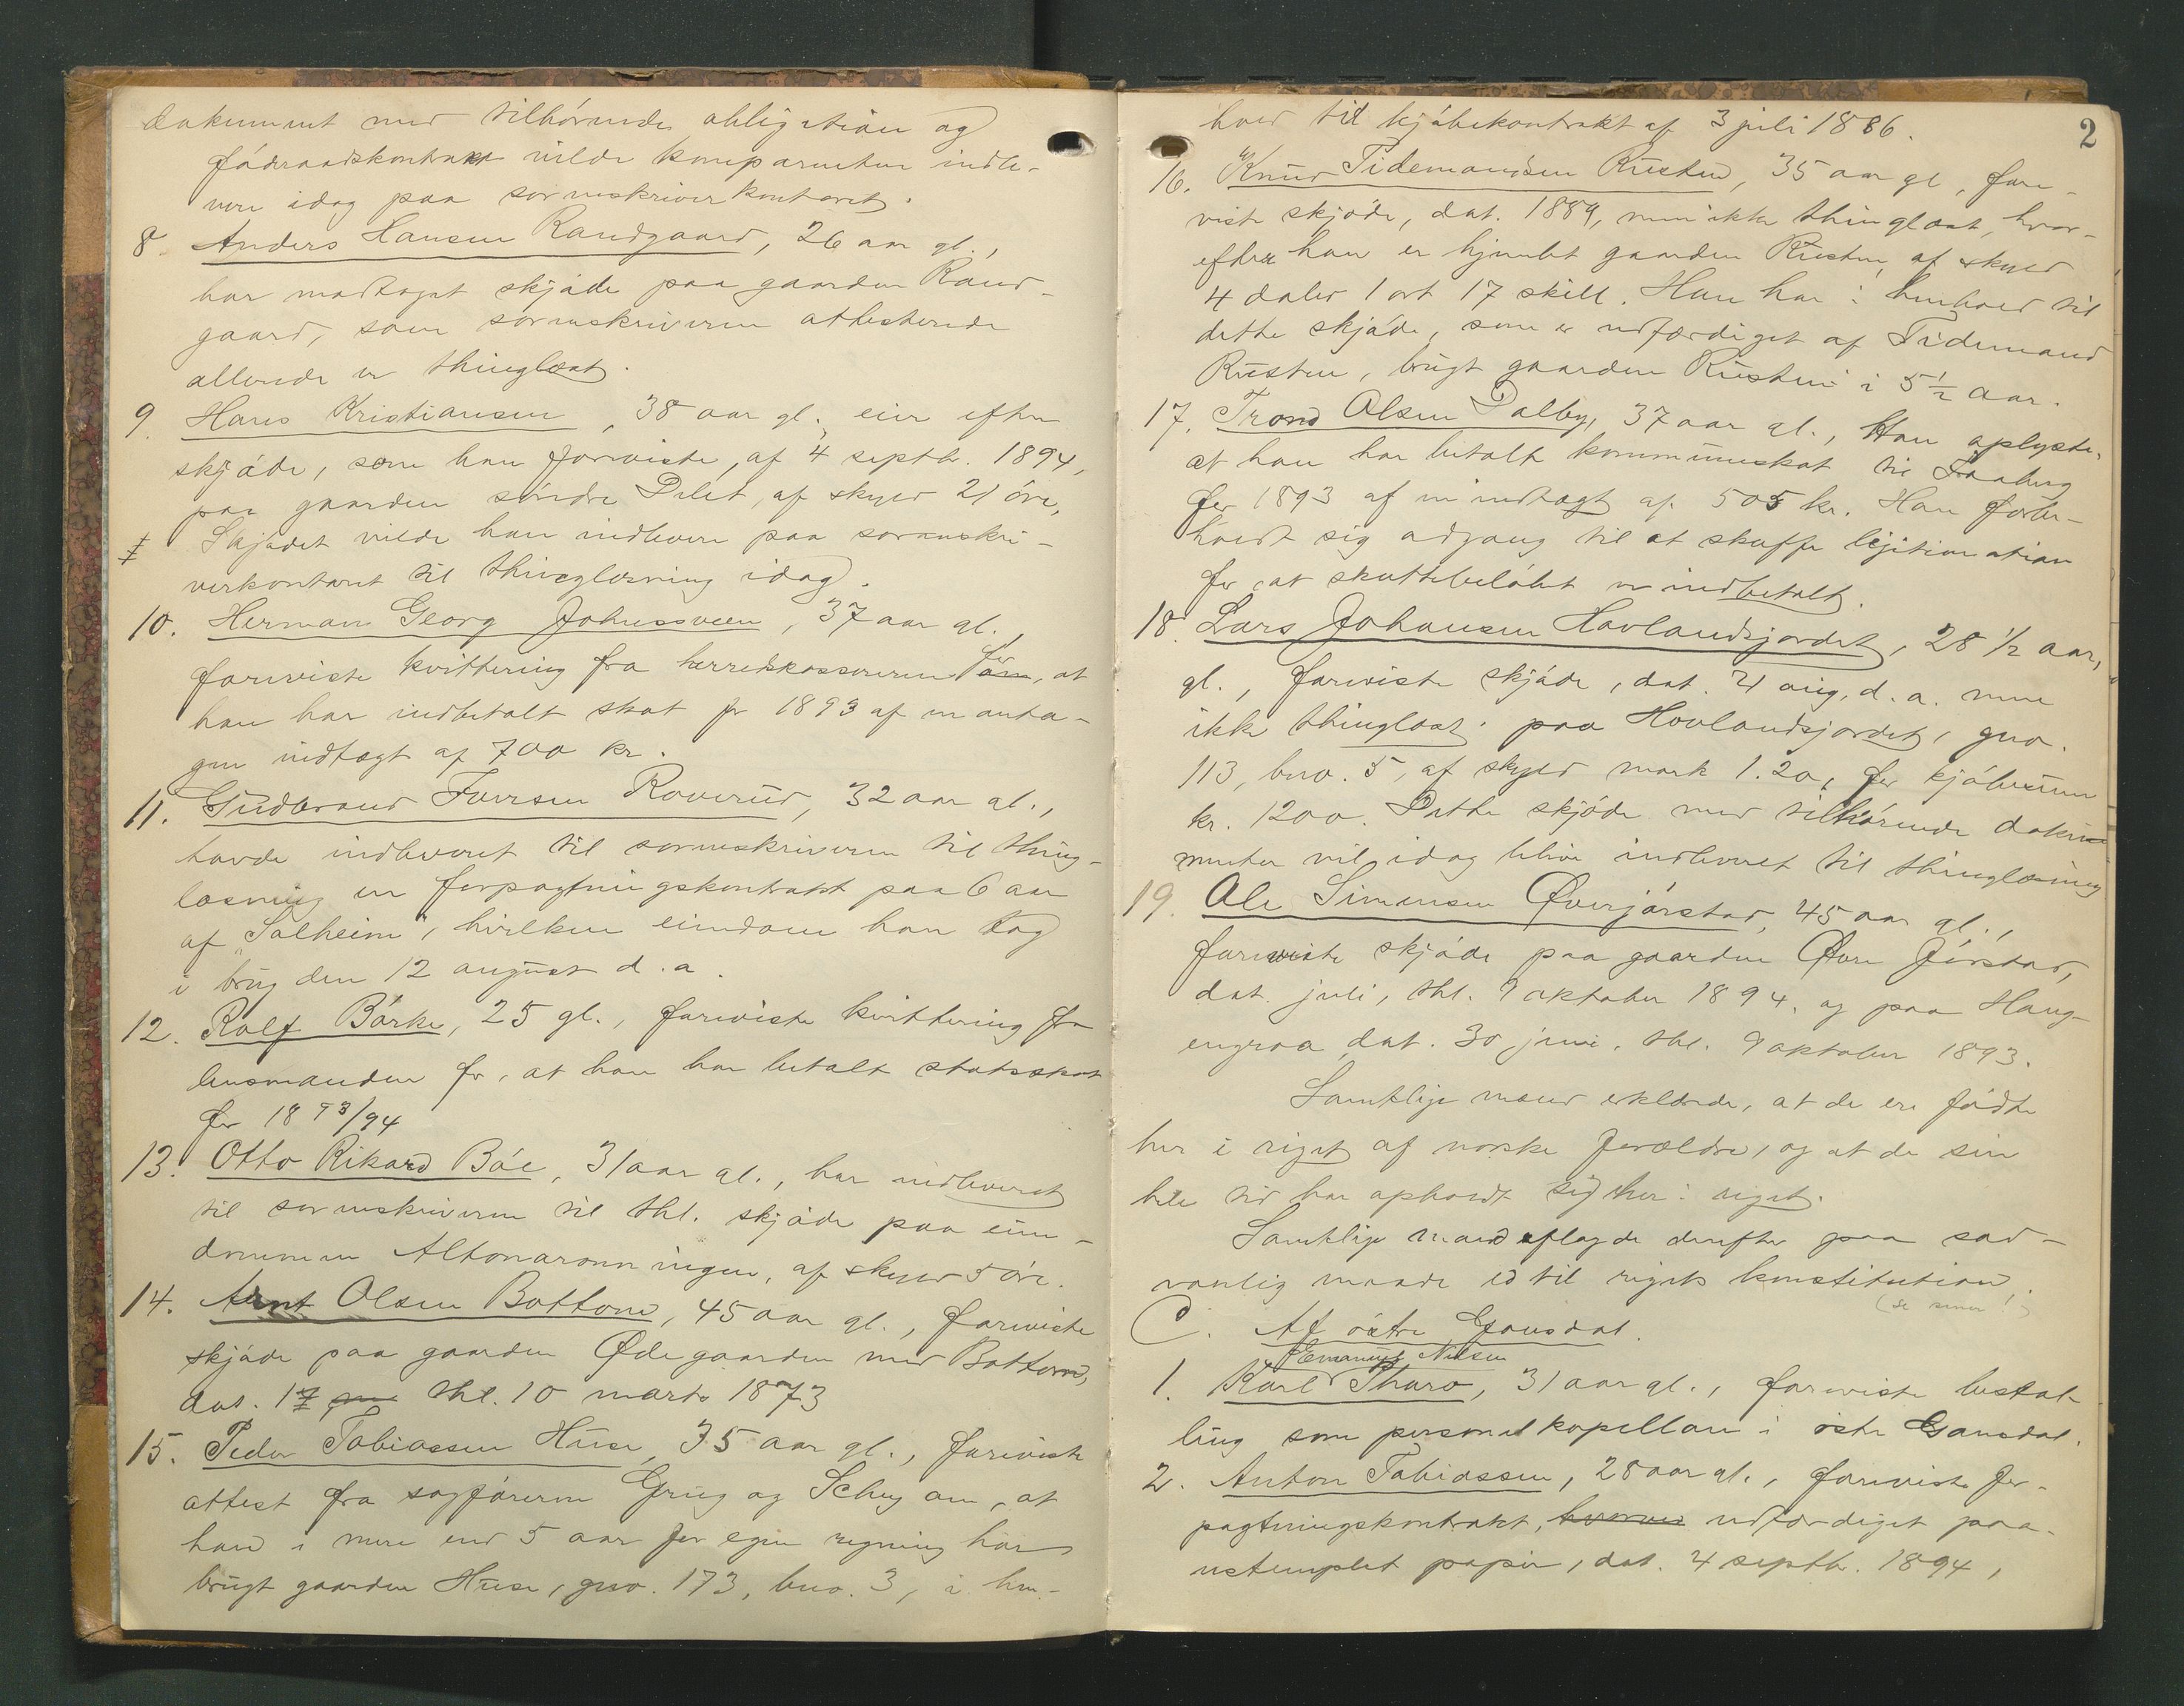 dokument med tilhörende obligation og
föderaadskontrakt vilde komparenten indle-
vere idag paa sorenskriverkontoret.
8. Anders Hansen Randgaard, 26 aar gl.,
har modtaget skjöde paa gaarden Rand-
gaard, som sorenskriveren attesterede
allerede er thinglæst.
9. Hans Kristiansen, 38 aar gl., eier efter
skjöde, som han foreviste, af 4 septbr. 1894,
paa gaarden söndre Delet, af skyld 21 öre,
Skjödet vilde han indlevere paa sorenskri-
verkontoret til thinglæsning idag.
10. Herman Georg Johnssveen, 37 aar gl.,
foreviste kvittering fra herredskassereren for om, at
han har indbetalt skat for 1893 af en anta-
gen indtægt af 700 kr.
11. Gudbrand Iversen Roverud, 32 aar gl.,
havde indleveret til sorenskriveren til thing-
læsning en forpagtningskontrakt paa 6 aar
af "Solheim", hvilken eiendom han tog
i brug den 12 august d.a.
12. Rolf Börke, 25 gl., foreviste kvittering fra
lensmanden for, at han har betalt statsskat
for 1893/94
13. Otto Rikard Böe, 31 aar gl., har indleveret
til sorenskriveren til thl. skjöde paa eien-
dommen Altonarønningen, af skyld 5 öre.
14. Arnt Olsen Bottom, 45 aar gl., foreviste
skjöde paa gaarden Ødegaarden med Bottom,
dat. 17 thl. 10 marts 1873
15. Peder Tobiassen Huse, 35 aar gl., foreviste
attest fra sagförerne Grug og Schey om, at
han i mere end 5 aar for egen regning har
brugt gaarden Huse, gno. 173, bno. 3, i hen-
2
hold til kjöbekontrakt af 3 juli 1886.
16. Knud Tidemandsen Rusten, 35 aar gl, fore-
viste skjöde, dat. 1889, men ikke thinglæst, hvor-
efter han er hjemlet gaarden Rusten, af skyld
4 daler 1 ort 17 skill. Han har i henhold til
dette skjöde, som er udfærdiget af Tidemand
Rusten, brugt gaarden Rusten i 5 1/2 aar.
17. Trond Olsen Dalby, 37 aar gl., Han oplyste,
at han har betalt kommuneskat til Faaberg
for 1893 af en indtægt af 505 kr. Han forbe-
holdt sig adgang til at skaffe legitimation
for, at skattebelöbet er indbetalt.
18. Lars Johansen Hovlandsjordet, 28 1/2 aar,
gl., foreviste skjöde, dat. 21 aug. d.a. men
ikke thinglæst paa Hovlandsjordet, gno.
113, bno. 5, af skyld mark 1.20, for kjöbesum
kr. 1200. Dette skjöde med tilhörende doku-
menter vil idag blive indleveret til thinglæsning
19. Ole Simensen Øverjörstad, 45 aar gl.,
foreviste skjöde paa gaarden Øvre Jörstad,
dat. juli, thl. 9 oktober 1894, og paa Haug-
engraa dat. 30 juni, thl. 9 oktober 1893.
Samtlige mænd erklærede, at de ere födte
her i riget af norske forældre, og at de sin
hele tid har opholdt sig her i riget.
Samtlige mænd aflagde derefter paa sæd-
vanlig maade ed til rigets konstitution.
(se senere!)
C. Af östre Gausdal.
Emanuel Nilsen
1. Karl Tharo, 31 aar gl., foreviste bestal-
ling som personelkapellan i östre Gausdal.
2. Anton Tobiassen, 28 aar gl., foreviste for-
pagtningskontrakt, hvorved udfærdiget paa
ustemplet papir, dat. 4 septbr. 1894,